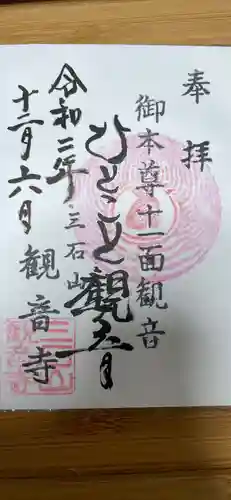 奉拝
御本尊十一面観音
ひとこと観音
令和二年
十二月六日
三石山
観音寺